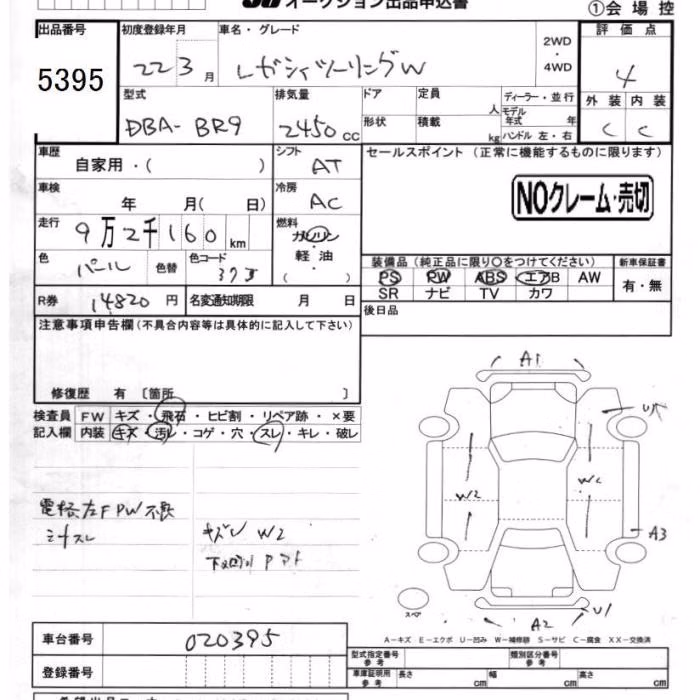 オークション出品申込書
①会場控
出品番号 5395
初度登録年月 22 3 月
車名・グレード レガシィツーリングW
2WD・4WD
評価点 4
外装 内装
C C
型式 DBA-BR9
排気量 2450 CC
ドア 定員 人
形状 積載 kg
ディーラー・並行
モデル年式 年
ハンドル 左・右
車歴 自家用・( )
シフト AT
セールスポイント (正常に機能するものに限ります)
NOクレーム・売切
車検 年 月( 日)
冷房 AC
走行 9万2千160 km
燃料 ガソリン・軽油・( )
色 パール 色替 色コード 37J
装備品(純正品に限り○をつけてください)
新車保証書 有・無
PS PW ABS エアB AW
SR ナビ TV カワ
R券 14820 円 名変通知期限 月 日
後日品
注意事項申告欄(不具合内容等は具体的に記入して下さい)
修復歴 有〔箇所 〕
検査員記入欄
FW キズ・飛石・ヒビ割・リペア跡・×要
内装 キズ・汚レ・コゲ・穴・スレ・キレ・破レ
電格左FPW不良
シートスレ
キズ W2
A1
W2
A3
U1
A2
スペア
A-キズ E-エクボ U-凹み W-補修跡 S-サビ C-腐食 XX-交換済
車台番号 020395
登録番号
型式指定番号 参考 類別区分番号 参考
車庫証明用 参考 長さ cm 幅 cm 高さ cm